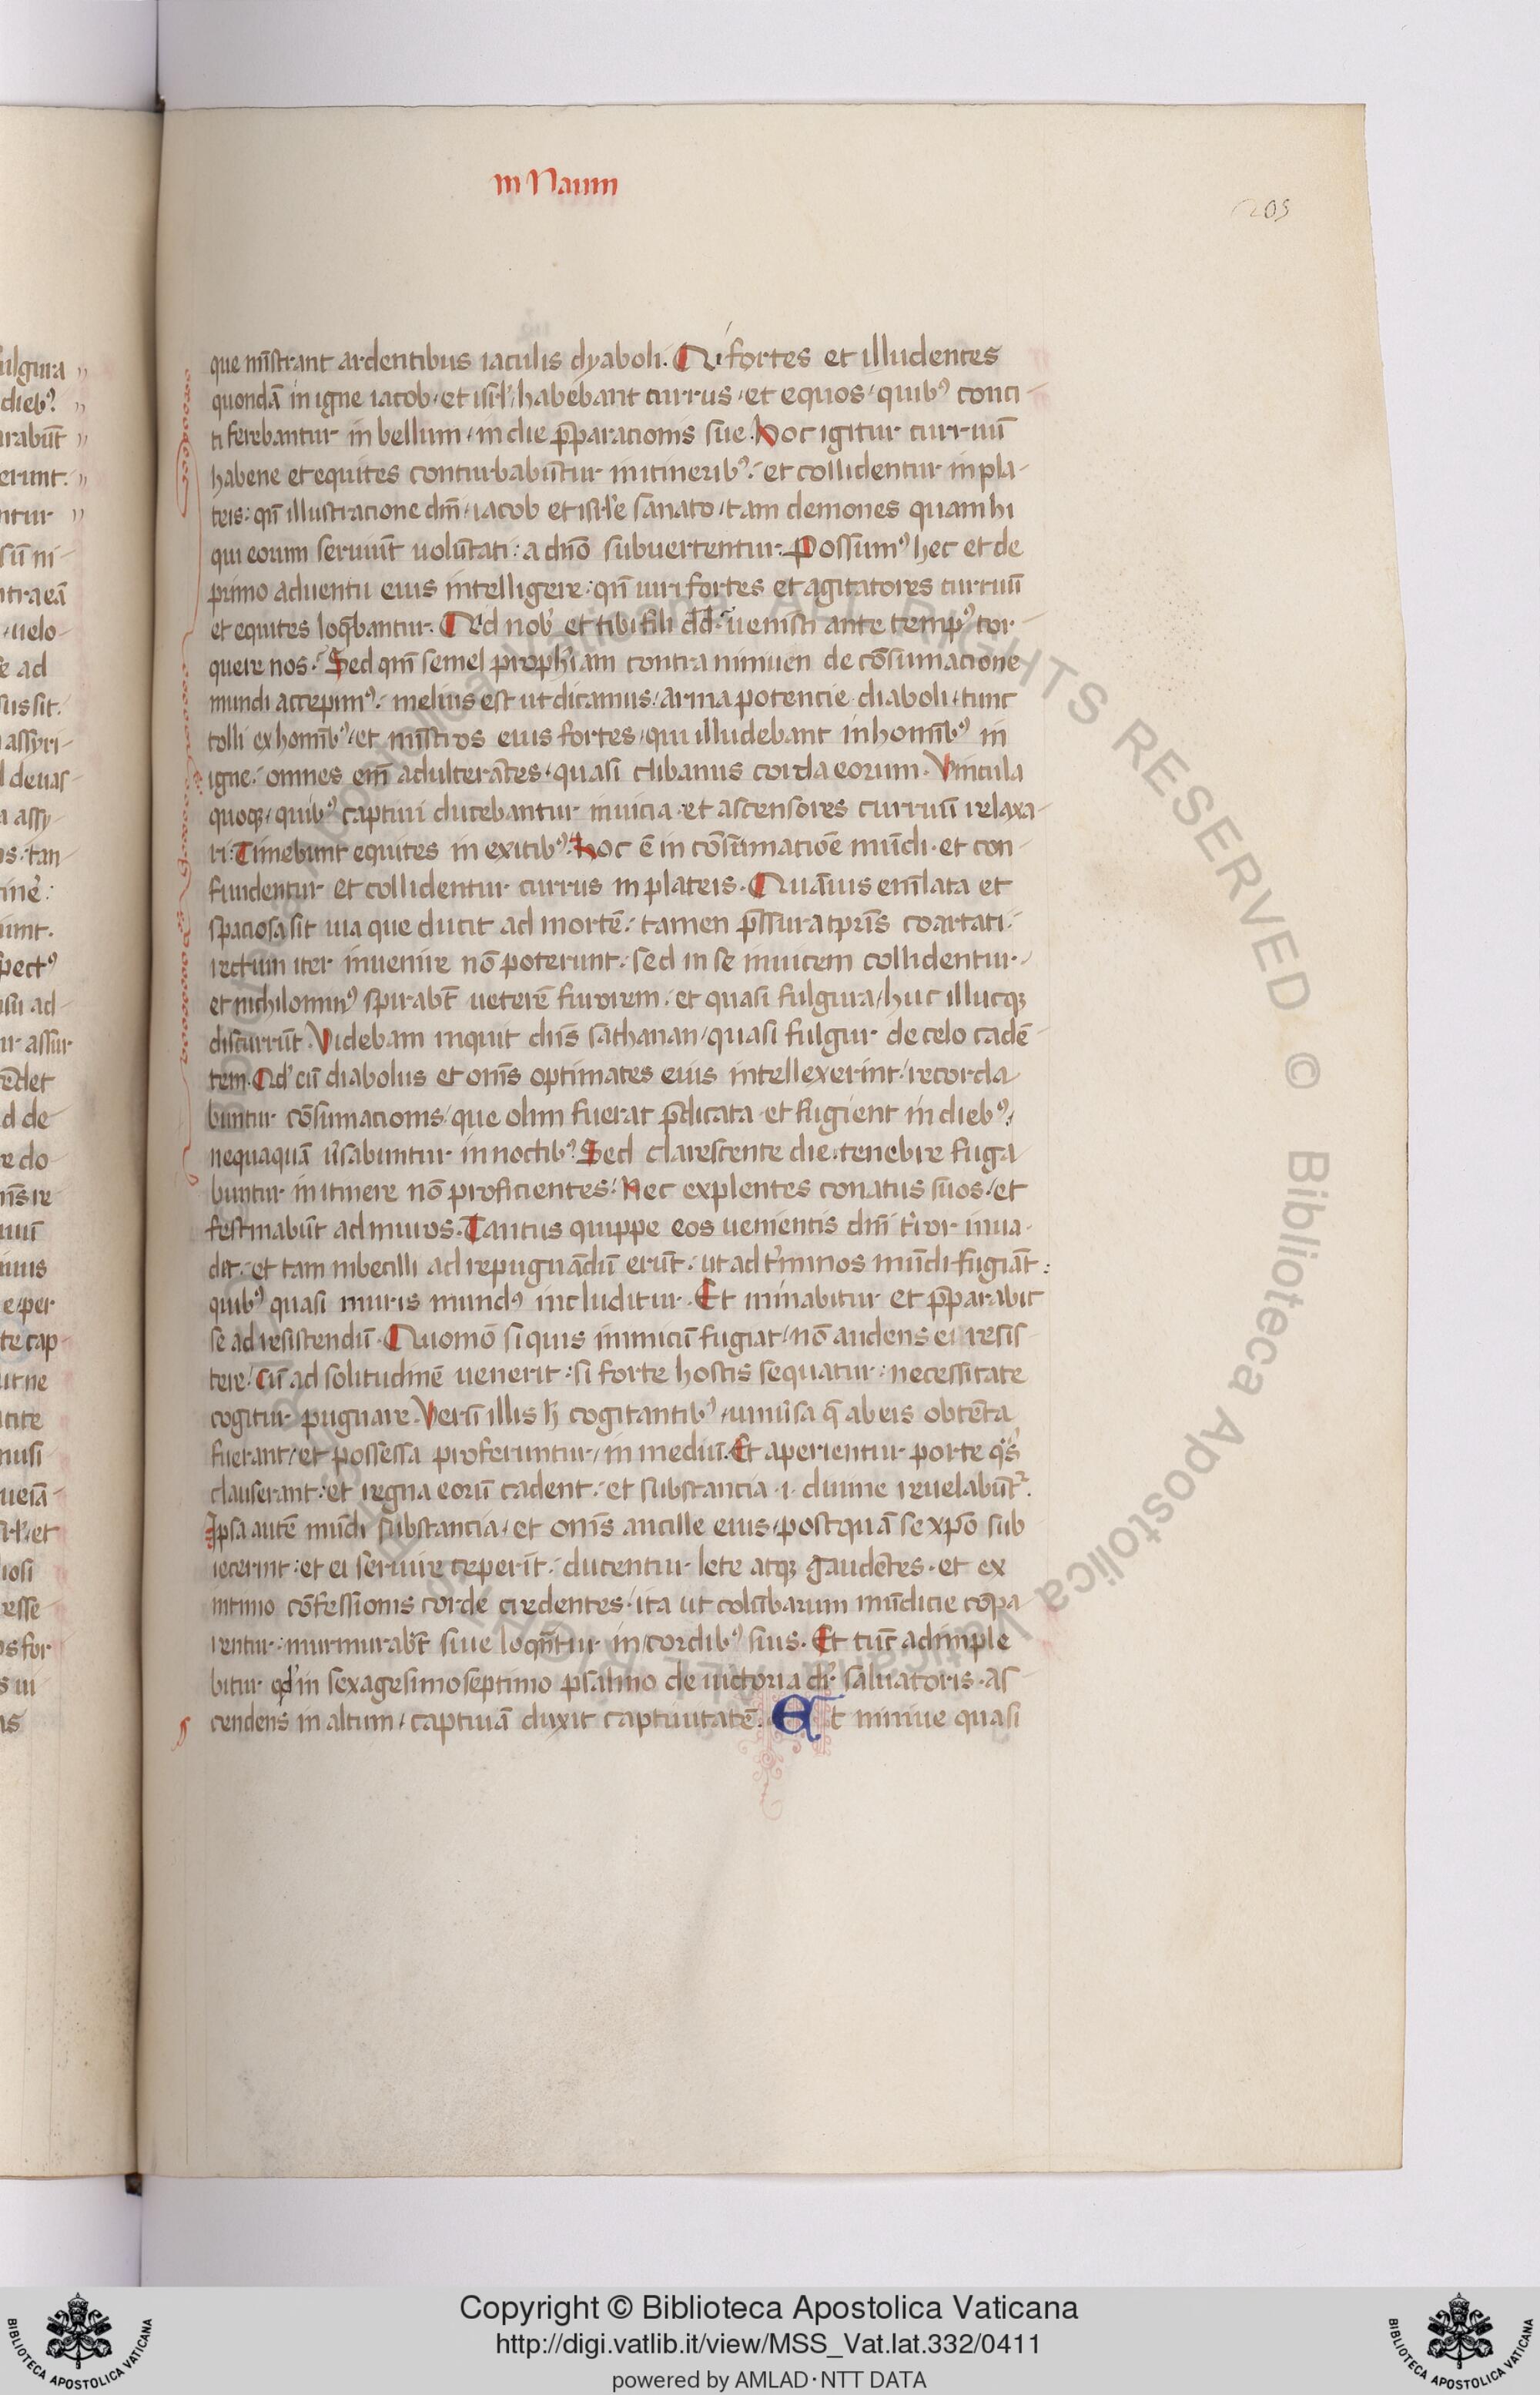 in Naum
205
que mīstrant ardentibus iaculis dyaboli. Qui fortes et illudentes
quondā in igne iacob, et isrl', habebant currus, et equos, quibꝰ conci-
ti ferebantur in bellum, in die p̄paracionis sue. Hoc igitur curruū
habene et equites conturbabūtur in itineribꝰ, et collidentur in pla-
teis, qn̄ illustracione dn̄i, iacob et isrl'e sanato, tam demones quam hi
qui eorum seruiūt uolūtati: a dn̄o subuertentur. Possumꝰ hec et de
primo aduentu eius intelligere: qn̄ uiri fortes et agitatores curruū
et equites loq̄bantur. Qd nob' et tibi fili dd̄: uenisti ante tempꝰ tor-
quere nos. Sed qm̄ semel proph̄iam contra niniuen de cōsumacione
mundi accepimꝰ: melius est ut dicamus, arma potencie diaboli, tunc
tolli ex homībꝰ, et mīstros eius fortes, qui illudebant in homībꝰ in
igne: omnes em̄ adulterātes, quasi clibanus corda eorum. Vincula
quoqꝫ, quibꝰ captiui ducebantur inuicia et ascensores curruū relaxa-
ri. Timebunt equites in exitibꝰ. Hoc ē in cōsūmatiōe mūdi, et con-
fundentur et collidentur currus in plateis. Quāuis enī lata et
spaciosa sit uia que ducit ad mortē: tamen p̄ssura tp̄ris coartati:
rectum iter inuenire nō poterunt, sed in se inuicem collidentur,
et nichilominꝰ spirabūt ueterē furorem, et quasi fulgura, huc illucqꝫ
discurrūt. Videbam inquit dn̄s sathanan, quasi fulgur de celo cadē-
tem. Qd' cū diabolus et om̄s optimates eius intellexerint, recorda-
buntur cōsumacionis, que olim fuerat p̄dicata et fugient in diebꝰ,
nequaquā ūsabuntur in noctibꝰ. Sed clarescente die, tenebre fuga-
buntur in itinere nō proficientes, Nec explentes conatus suos, et
festinabūt ad muros. Tantus quippe eos uenientis dn̄i t'ror inua-
dit, et tam inbecilli ad repugnādū erūt, ut ad t'minos mūdi fugiāt:
quibꝰ quasi muris mundꝰ includitur. Et minabitur et p̄parabit
se ad resistendū. Quomō si quis inimicū fugiat, nō audens ei resis-
tere, cū ad solitudinē uenerit: si forte hostis sequatur: necessitate
cogitur pugnare. Verū illis h̄ cogitantibꝰ, uniūsa q̄ ab eis obtēta
fuerant, et possessa proferuntur, in mediū. Et aperientur porte q̄s
clauserant: et regna eorū cadent: et substancia .i. diuine reuelabūt².
Ipsa autē mūdi substancia, et om̄s ancille eius, postquā se xp̄o sub-
iecerint: et ei seruire ceperīt: ducentur lete atqꝫ gaudētes, et ex
intimo cōfessionis corde credentes, ita ut colūbarum mūdicie cōpa-
rentur: murmurabūt siue loqn̄tur in cordibꝰ suis. Et tūc adimple-
bitur qd' in sexagesimo septimo psalmo de uictoria dr̄ saluatoris, as-
cendens in altum, captiuā duxit captiuitatē. Et niniue quasi
Copyright © Biblioteca Apostolica Vaticana
http://digi.vatlib.it/view/MSS_Vat.lat.332/0411
powered by AMLAD·NTT DATA